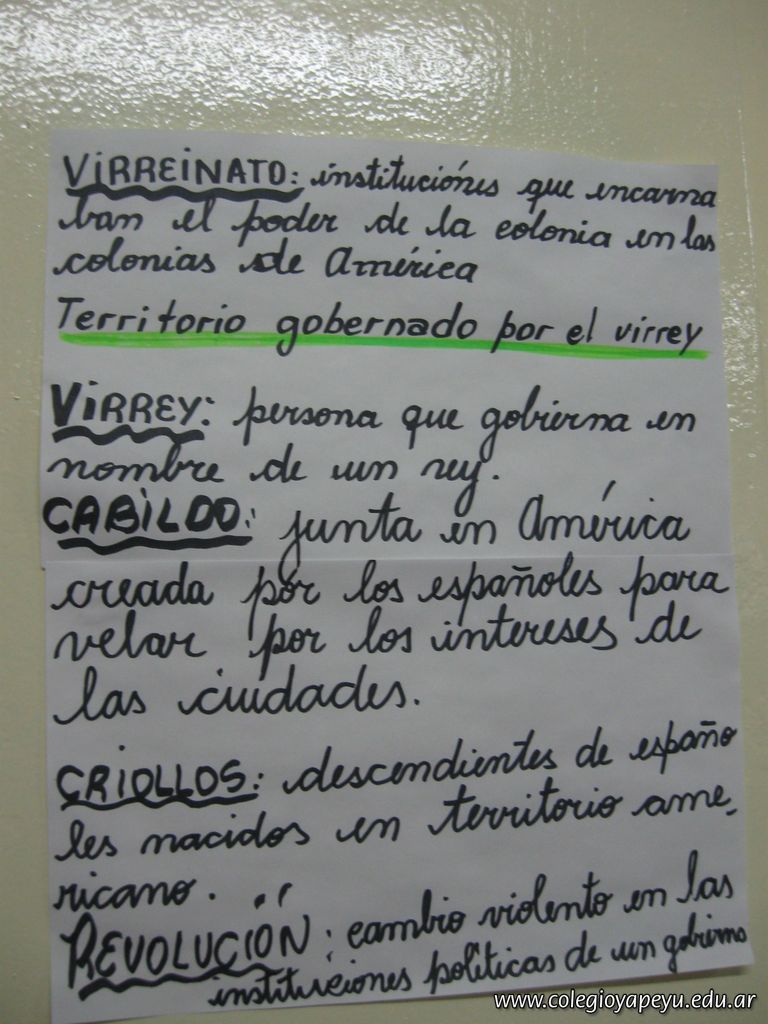 VIRREINATO: instituciónes que encarna
ban el poder de la colonia en las
colonias de América
Territorio gobernado por el virrey
VIRREY: persona que gobierna en
nombre de un rey.
CABILDO: junta en América
creada por los españoles para
velar por los intereses de
las ciudades.
CRIOLLOS: descendientes de españo
les nacidos en territorio ame-
ricano.
REVOLUCIÓN: cambio violento en las
instituciones políticas de un gobierno
www.colegioyapeyu.edu.ar